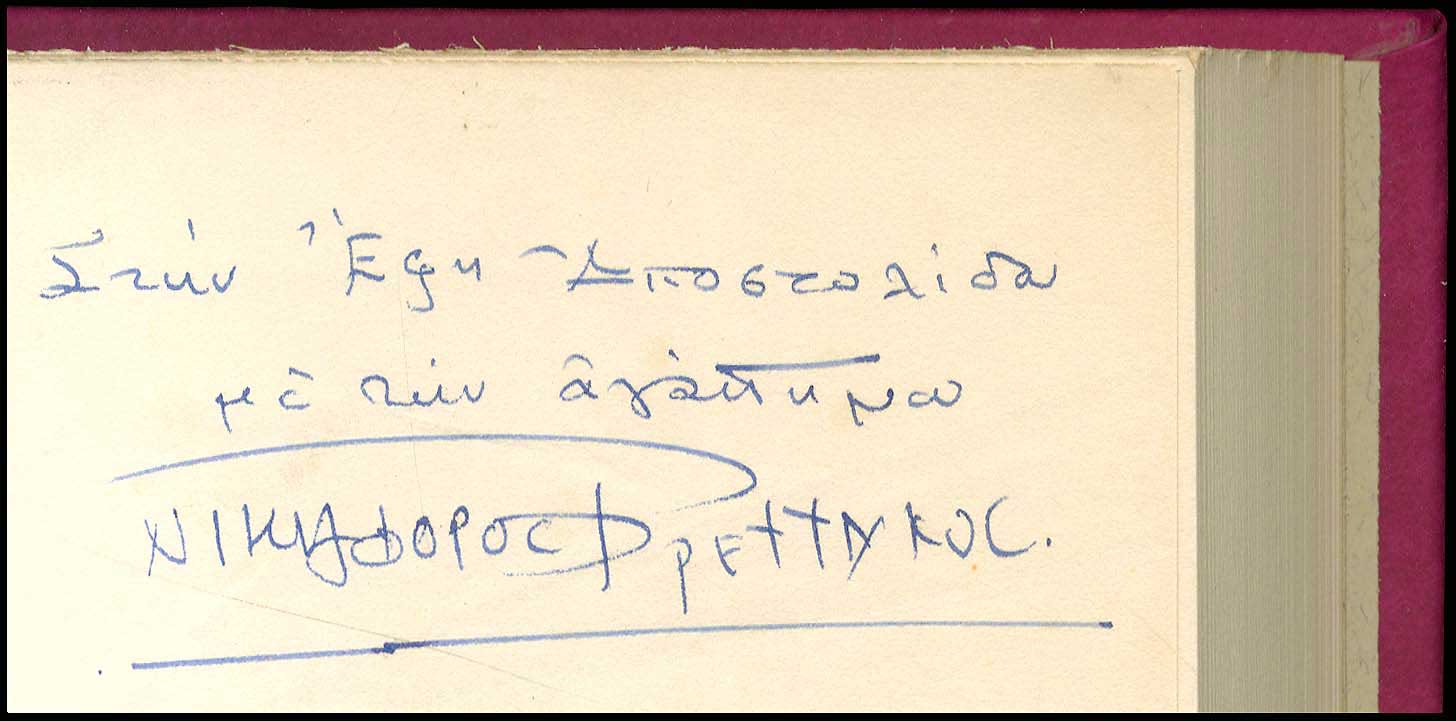 Στὴν Ἔφη Ἀποστολίδου
μὲ τὴν ἀγάπη μου
ΝΙΚΗΦΟΡΟΣ ΒΡΕΤΤΑΚΟΣ.